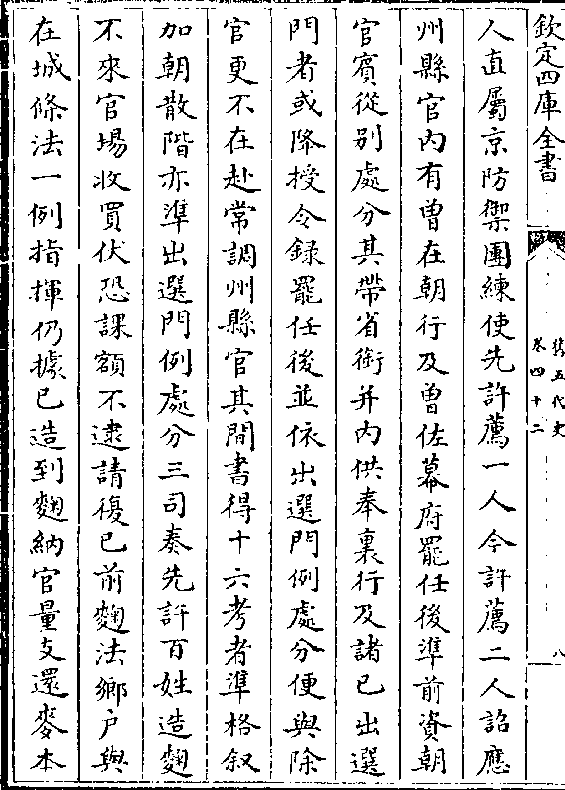 欽定四庫全書
舊五代史
卷四十二
八
人直屬京防禦團練使先許薦一人今許薦二人詔應
州縣官内有曾在朝行及曾佐幕府罷任後準前資朝
官賓從别處分其帶省銜并内供奉裏行及諸已出選
門者或降授令録罷任後並依出選門例處分便與除
官更不在赴常調州縣官其間書得十六考者準格叙
加朝散階亦準出選門例處分三司奏先許百姓造麴
不來官場收買伏恐課額不逮請復已前麴法鄉户與
在城條法一例指揮仍據已造到麴納官量支還麥本